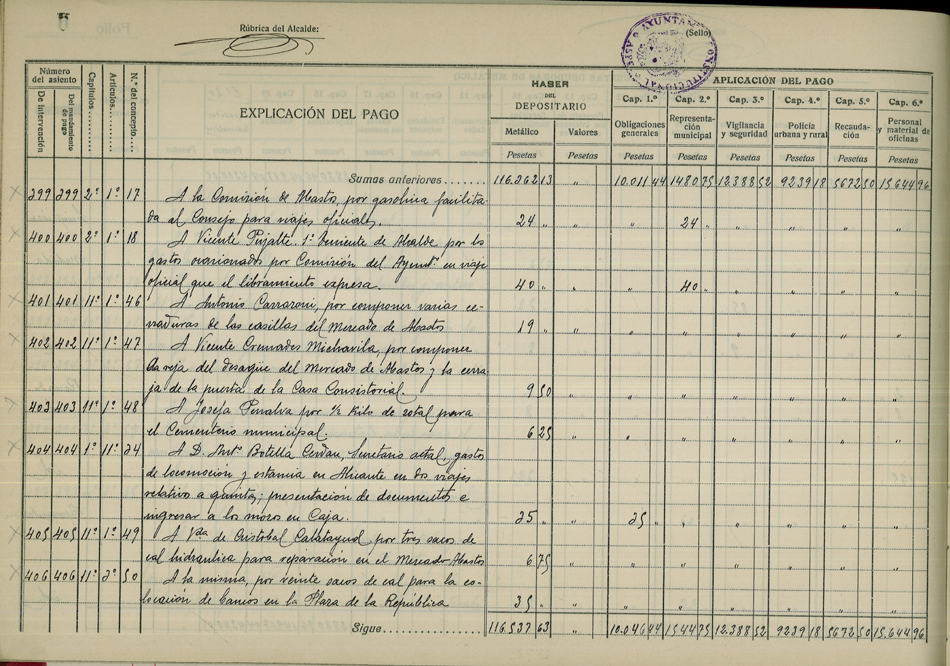 6
Rúbrica del Alcalde:
(Sello)
AYUNTAMIENTO CONSTITUCIONAL
Número del asiento
De Intervención
Del mandamiento de pago
Capítulos
Artículos
N.º del concepto
EXPLICACIÓN DEL PAGO
HABER DEL DEPOSITARIO
Metálico Valores
APLICACIÓN DEL PAGO
Cap. 1.º Cap. 2.º Cap. 3.º Cap. 4.º Cap. 5.º Cap. 6.º
Obligaciones generales
Representación municipal
Vigilancia y seguridad
Policía urbana y rural
Recaudación
Personal y material de oficinas
Pesetas Pesetas Pesetas Pesetas Pesetas Pesetas Pesetas Pesetas
Sumas anteriores....... 116.362 13 " 10.011 44 1480 75 12.388 52 9239 18 5672 50 15.644 96
399 399 2º 1º 17 A la Comisión de Abastos, por gasolina facilita-
da al Consejo para viajes oficiales. 24 " " " 24 " " " " "
400 400 2º 1º 18 A Vicente Pujalte. 1º Teniente de Alcalde por los
gastos ocasionados por Comisión del Ayuntº en viaje
oficial que el libramiento expresa. 40 " " " 40 " " " " "
401 401 11º 1º 46 A Antonio Carraroni, por componer varias ce-
rraduras de las casillas del Mercado de Abastos 19 " " " " " " " "
402 402 11º 1º 47 A Vicente Cremades Michavila, por componer
la reja del desagüe del Mercado de Abastos y la cerra
ja de la puerta de la Casa Consistorial. 9 50 " " " " " " "
403 403 11º 1º 48 A Josefa Penalva por ½ kilo de zotal para
el Cementerio municipal. 6 25 " " " " " " "
404 404 1º 11º 34 A D. Antº Botella Cerdán, Secretario actal, gastos
de locomoción y estancia en Alicante en dos viajes
relativo a quintas; presentación de documentos e
ingresar a los mozos en Caja. 35 " " 35 " " " " " "
405 405 11º 1º 49 A Vda de Cristobal Calatayud por tres sacos de
cal hidráulica para reparación en el Mercado Abastos 6 75 " " " " " " "
406 406 11º 3º 50 A la misma, por veinte sacos de cal para la co-
locación de bancos en la Plaza de la República 35 " " " " " " " "
Sigue............... 116.537 63 " 10.046 44 1544 75 12.388 52 9239 18 5672 50 15.644 96